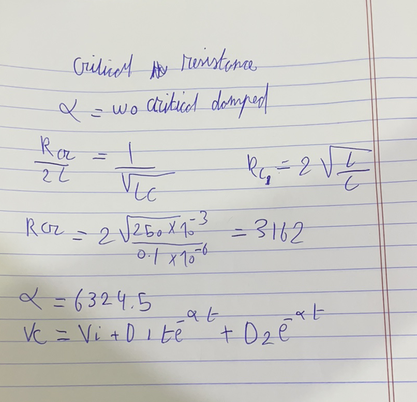 Critical resistance
α = wo critical damped
Rcr/2L = 1/√LC    Rc, = 2 √L/C
Rcr = 2 √250 x 10^-3 / 0.1 x 10^-6 = 3162
α = 6324.5
Vc = Vi + D1te^-αt + D2e^-αt